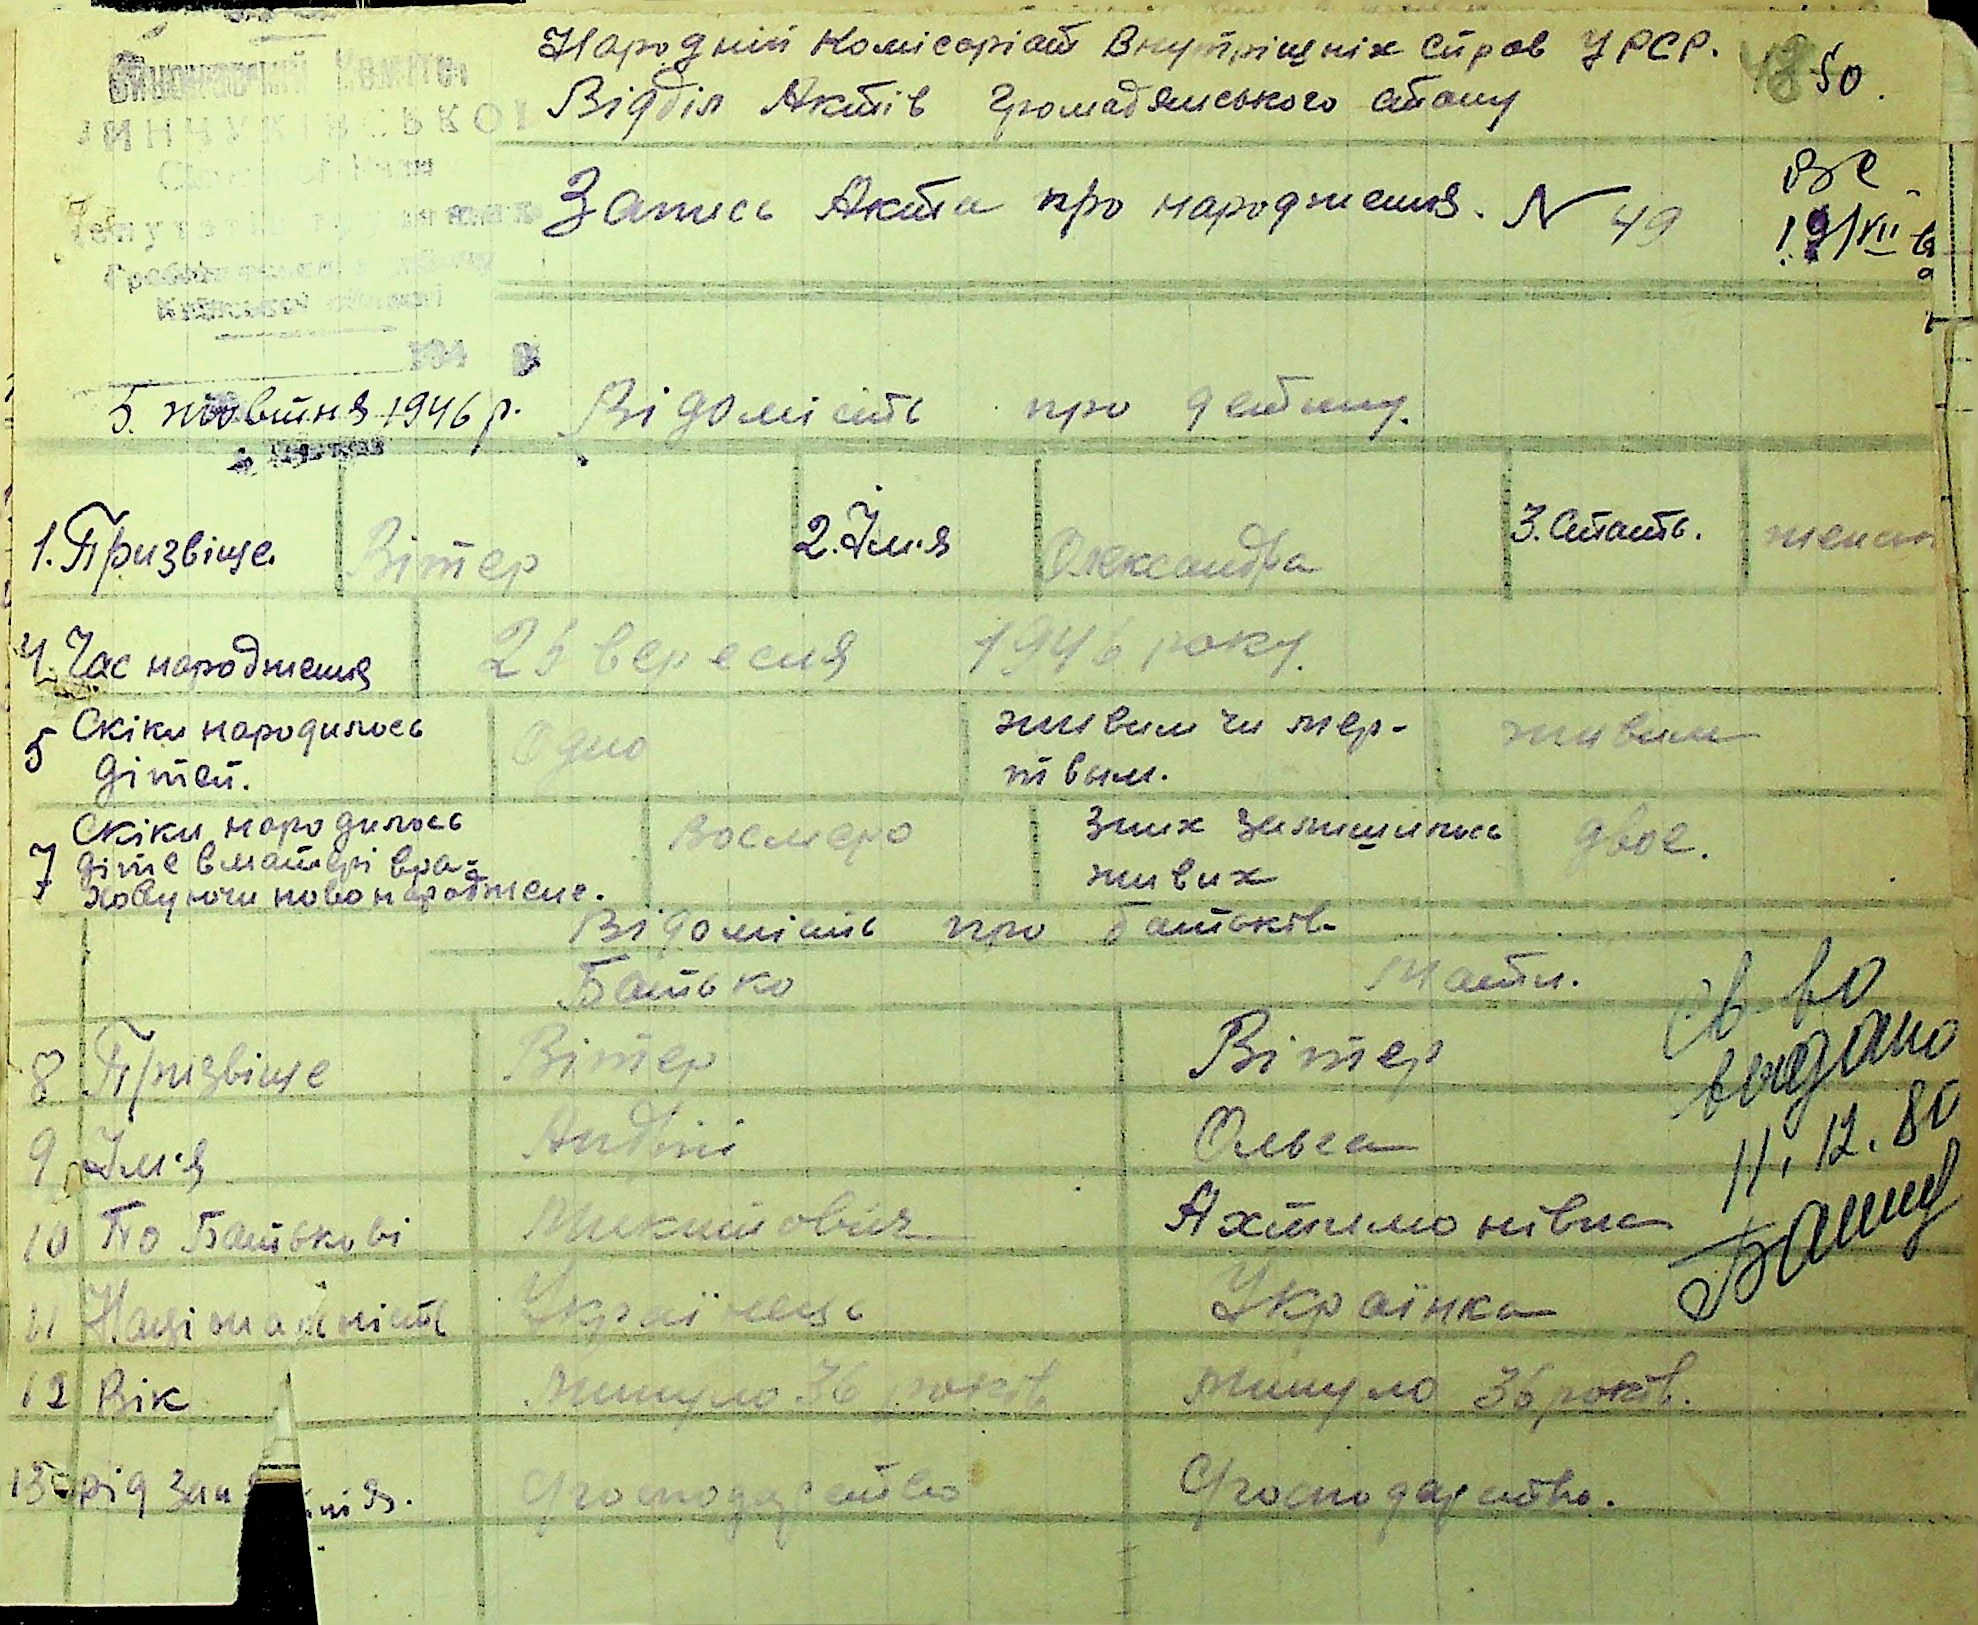 Народній Комісаріат Внутрішніх Справ УРСР.
50.
Відділ Актів Громадянського стану
Виконавчий Комітет
Запись Акта про народження. N 49
5. жовтня 1946 р. Відомість про детину.
1. Призвіще. Вітер 2. Им'я Олександра 3. Стать. женсп
4. Час народження 25 вересня 1946 року.
5 Скіки народилось дітей. Одно живим чи мертвым. живим
7 Скіки народилось діте в матері враховуючи новонароджене. Восмеро Зних залишилось живих двое.
Відомість про батьків
Батько Мати.
8 Призвіще Вітер Вітер
9 Им'я Андрій Ольга
10 По Батькові Микитович Ахтимонівна
11 Національність Українець Українка
12 Вік минуло 36 років минуло 36 років.
13 рід зан ія. Господарство Господарство.
св-во
выдано
11.12.80